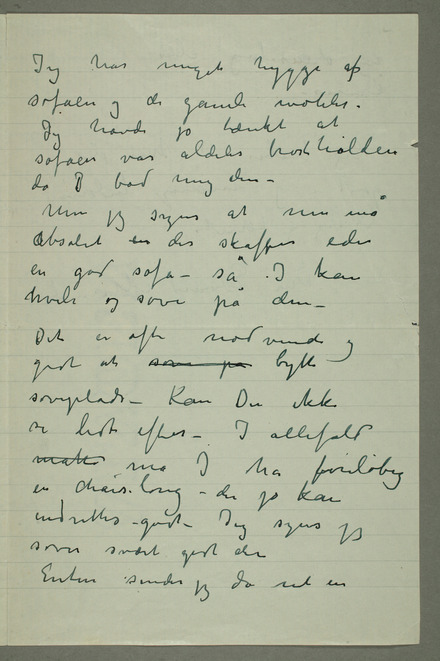 Jeg har meget hygge af
sofaen og de gamle møbler.
Jeg havde jo tænkt at
sofaen var aldeles brøstholden
da I bød mig den –
Men jeg synes at nu må
absolut en der skaffes eder
en god sofa – så I kan
hvile og sove på den –
Det er ofte nødvendig og
godt at sove på bytte
soveplads – Kan Du ikke
se lidt efter – I allefald
måtte må I ha foreløbig
en chaiselong – der jo kan
indrettes godt – Jeg synes jeg
sover svært godt der
Enten sender jeg da ned en